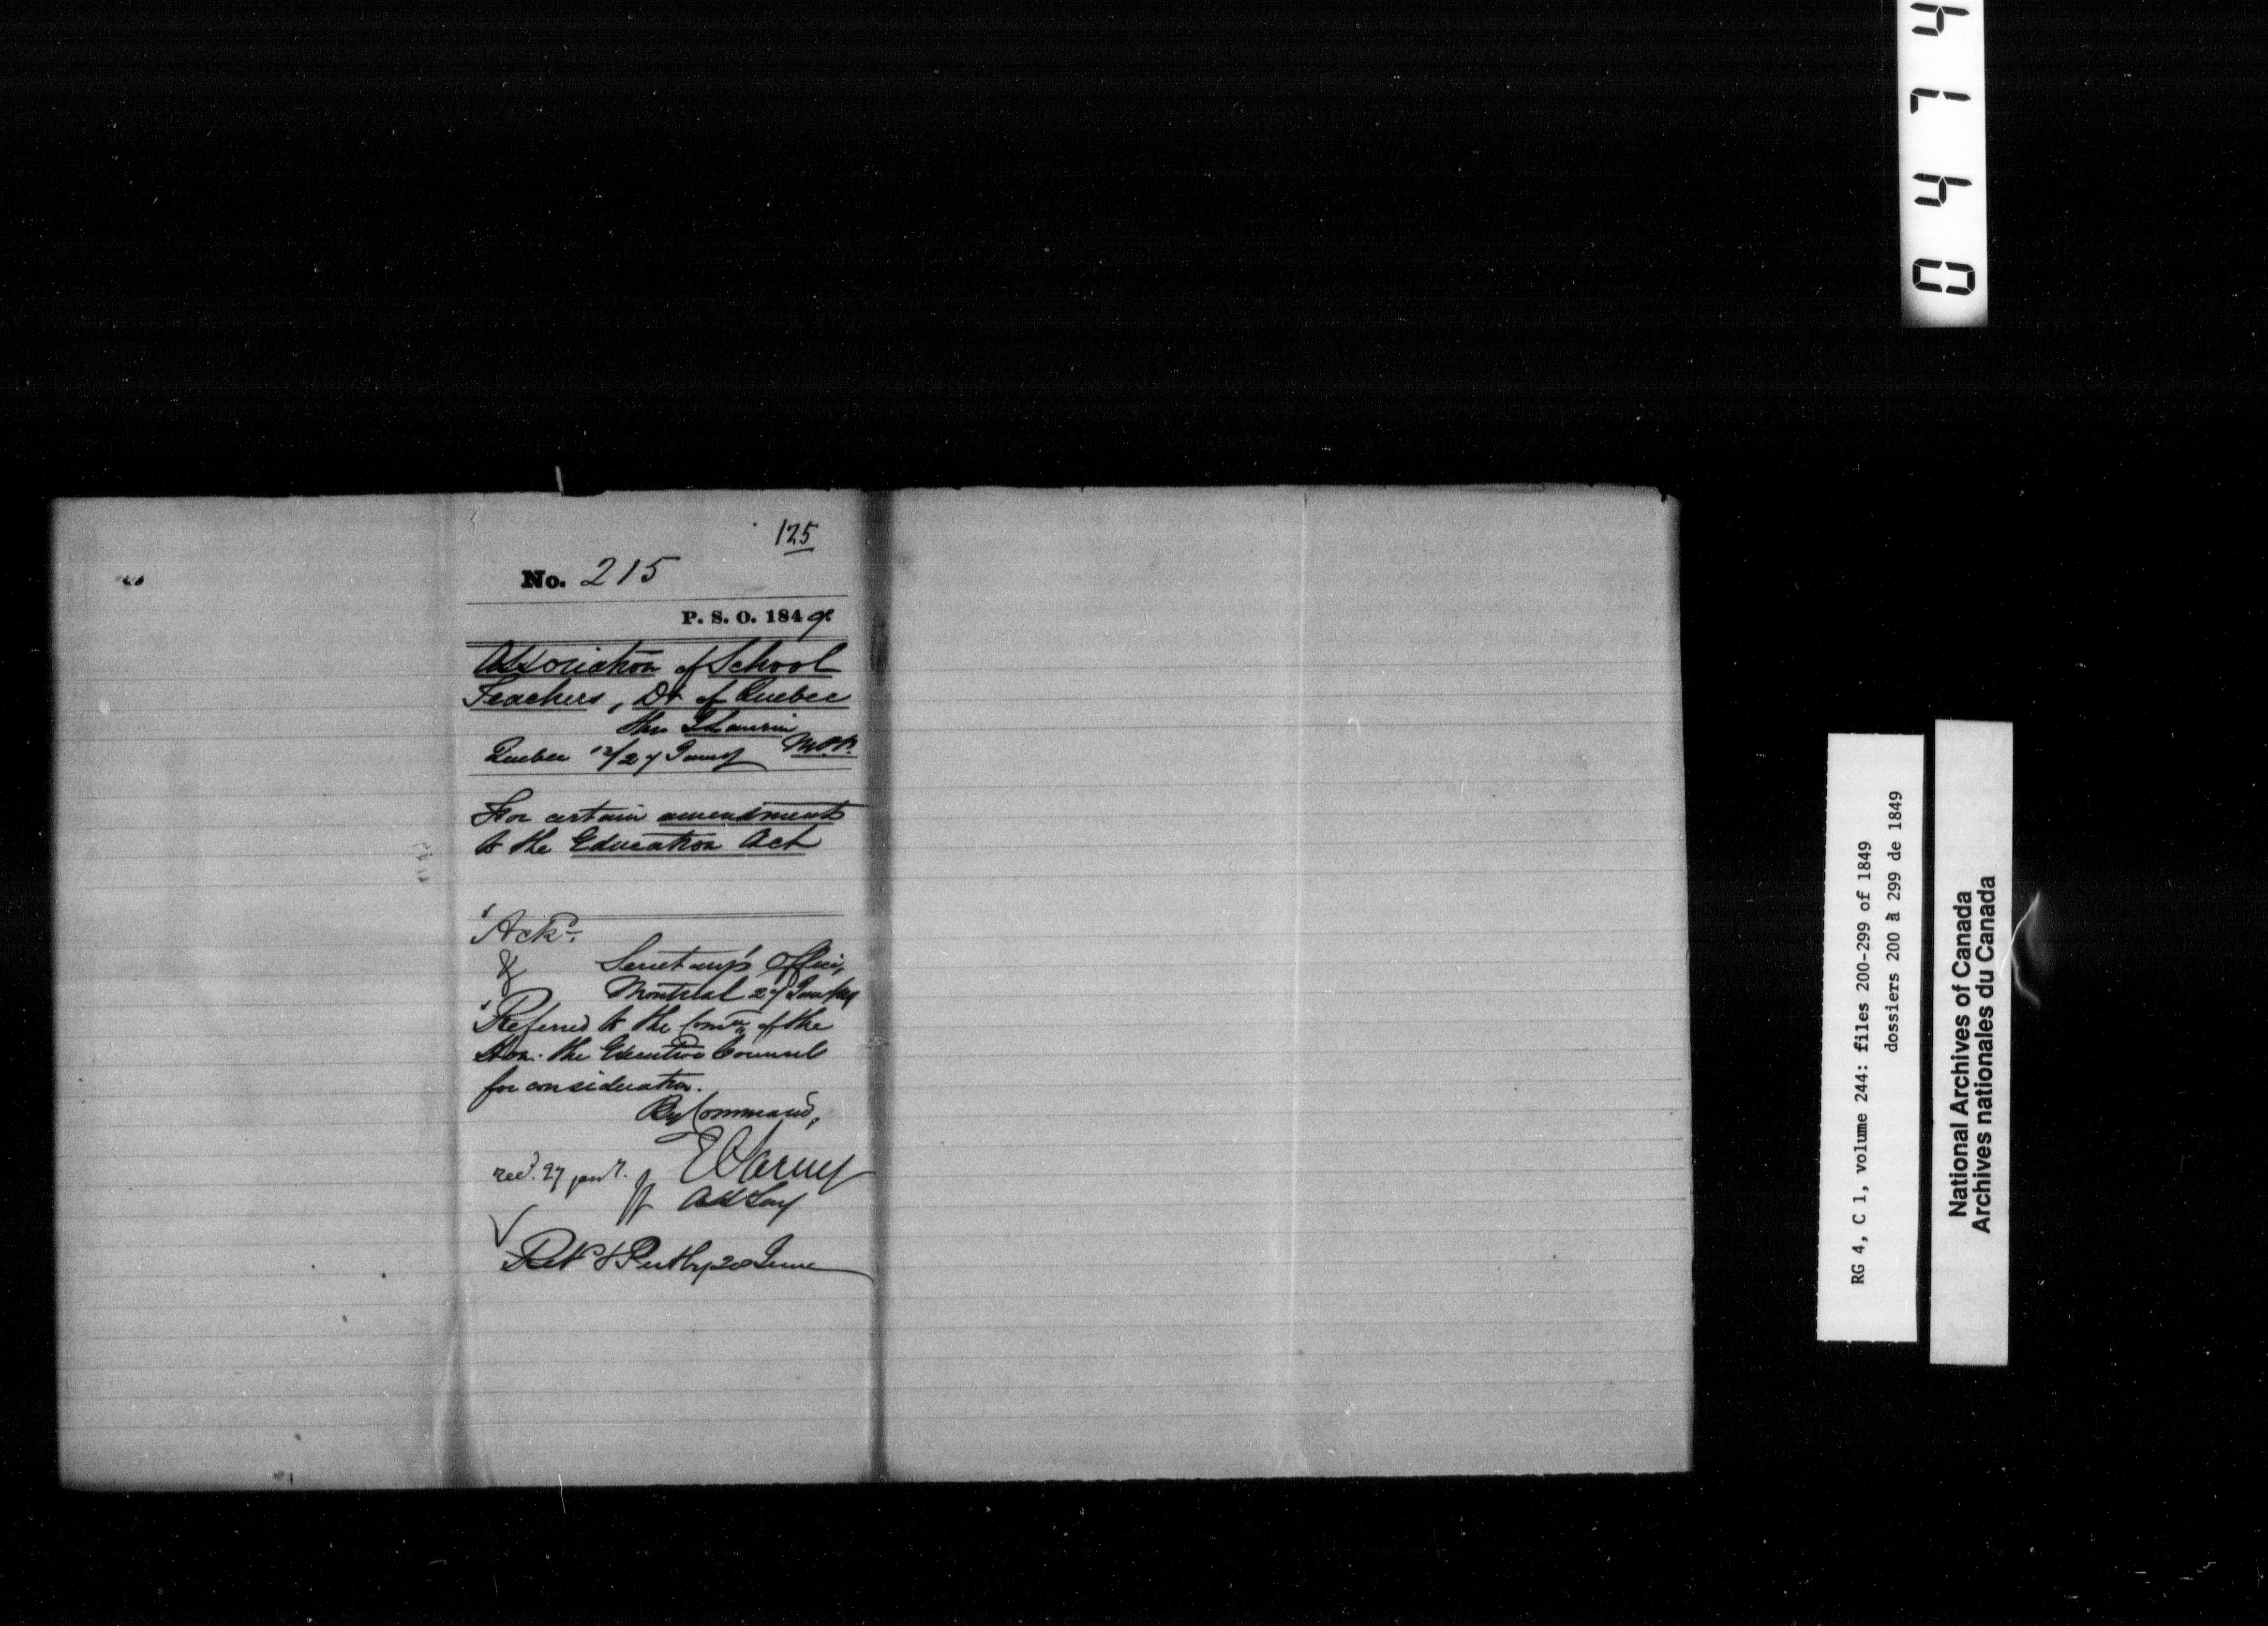 125
No. 215
P. S. O. 1849.
Association of School
Teachers, Dt of Quebec
thro Laurin
M.P.P.
Quebec 12/27 Jany
For certain amendments
to the Education Act
Ackd.
&
Secretary's Office,
Montreal 27 Jan/49
Referred to the Comee. of the
Hon. the Executive Council
for consideration.
By Command,
recd. 27 janr.
Asst Secy
20 June
0474
RG 4, C 1, volume 244: files 200-299 of 1849
dossiers 200 à 299 de 1849
National Archives of Canada
Archives nationales du Canada